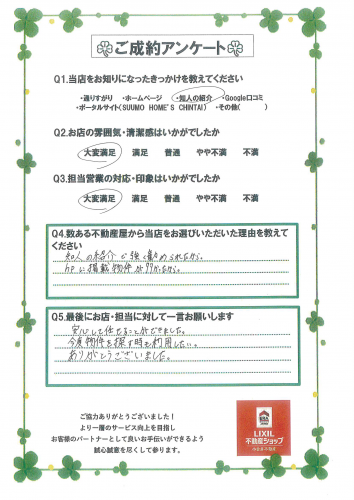 ご成約アンケート
Q1.当店をお知りになったきっかけを教えてください
・通りすがり ・ホームページ ・知人の紹介 ・Google口コミ
・ポータルサイト(SUUMO HOME'S CHINTAI) ・その他( )
Q2.お店の雰囲気・清潔感はいかがでしたか
大変満足 満足 普通 やや不満 不満
Q3.担当営業の対応・印象はいかがでしたか
大変満足 満足 普通 やや不満 不満
Q4.数ある不動産屋から当店をお選びいただいた理由を教えて
ください
知人の紹介で強く薦められたから。
hpに掲載物件が多かったから。
Q5.最後にお店・担当に対して一言お願いします
安心して任せることができました。
今度物件を探す時も利用したい。
ありがとうございました。
ご協力ありがとうございました!
より一層のサービス向上を目指し
お客様のパートナーとして良いお手伝いができるよう
誠心誠意を尽くして参ります。
ERA
LIXIL
不動産ショップ